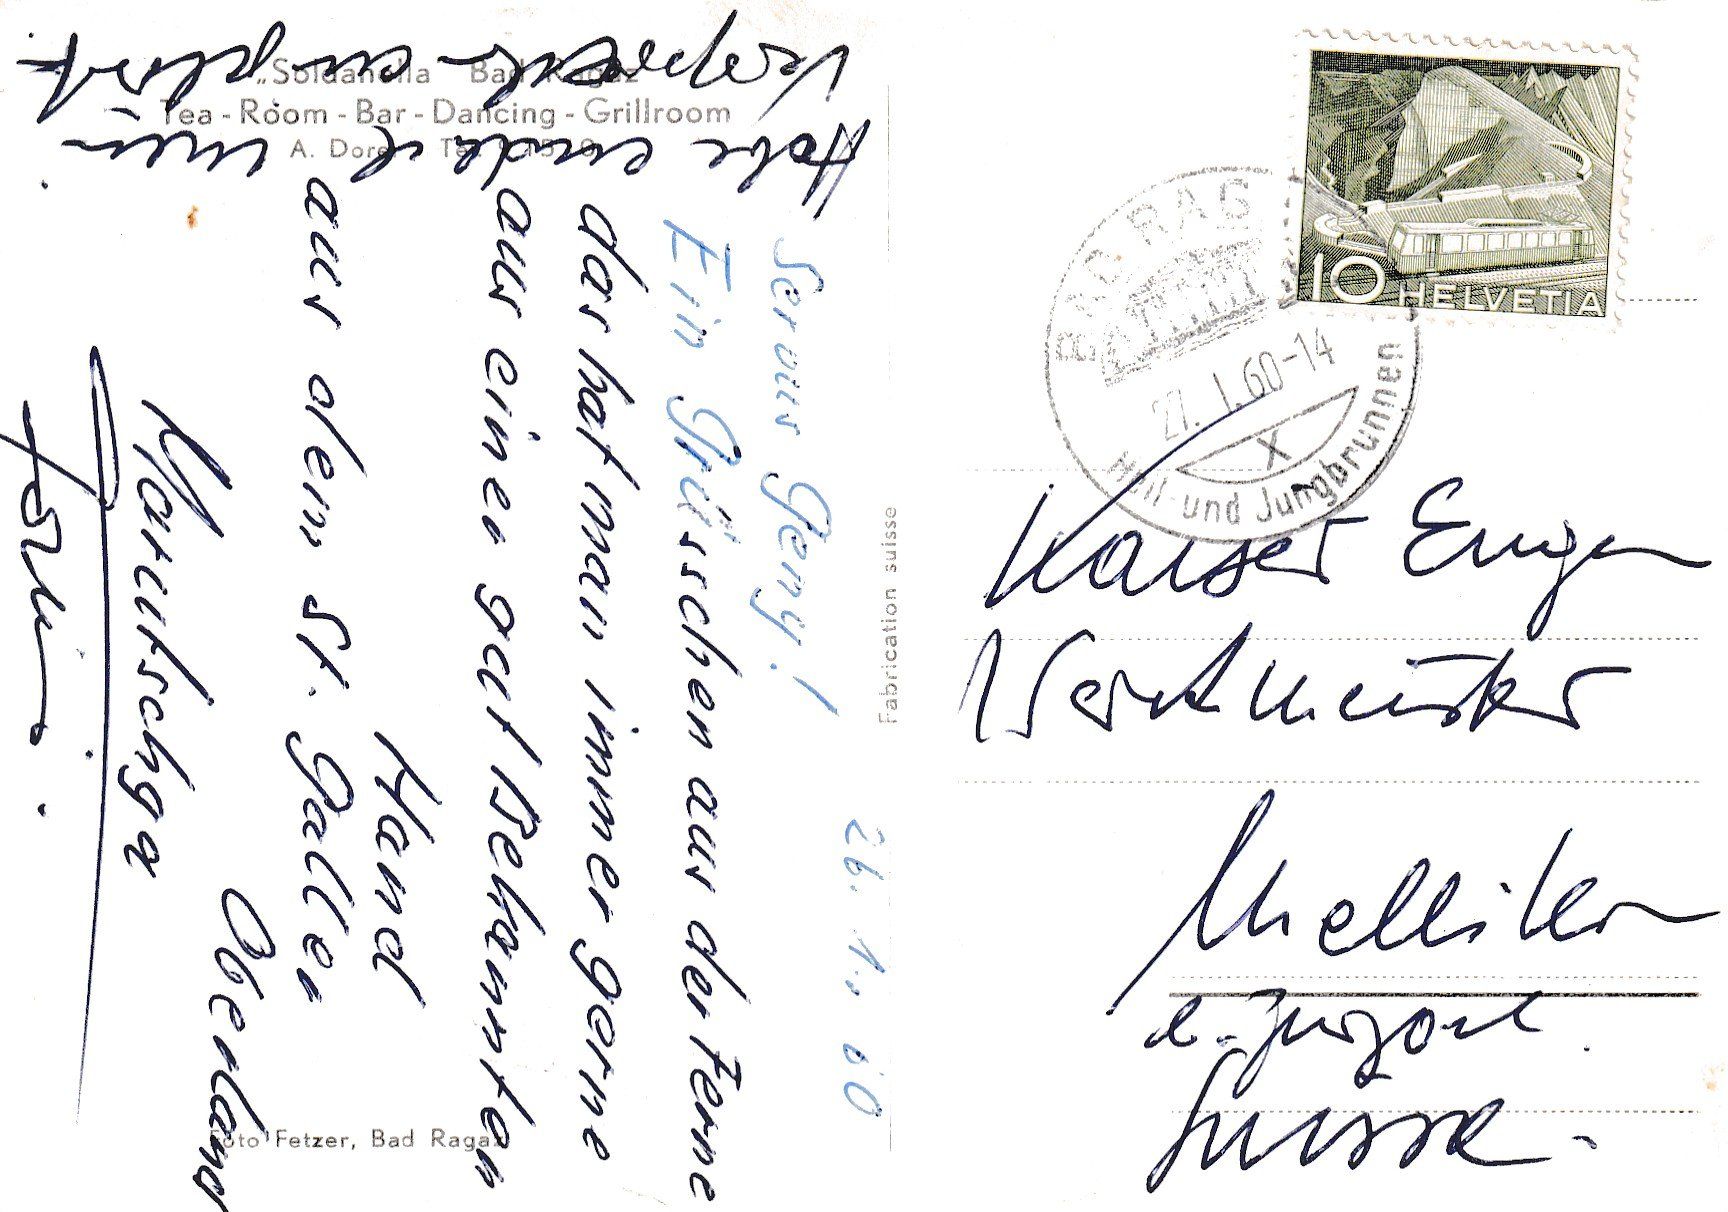 „Soldanella" Bad Ragaz
Tea-Room-Bar-Dancing-Grillroom
A. Dorer
26. 1. 60
Servus Geny!
Ein Grüsschen aus der Ferne
das hat man immer gerne
aus einer gut Bekannten
Hand
aus dem St. Galler
Oberland
Habe endlich mein
Versprechen eingelöst.
Foto Fetzer, Bad Ragaz
Fabrication suisse
BAD RAGAZ
27. I. 60-14
X
Heil- und Jungbrunnen
10 HELVETIA
Kaiser Eugen
Werkmeister
Mellikon
Suisse.